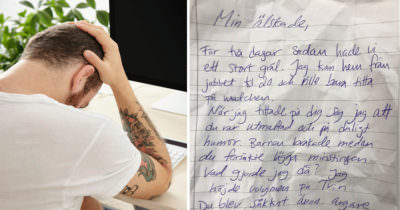 Min älskade,
För två dagar sedan hade vi
ett stort gräl. Jag kom hem från
jobbet 20 och ville bara titta
på matchen.
När jag tittade på dig såg jag att
du var utmattad och på dåligt
humör. Barnen bråkade medan
du försökte lägga minstingen
Vad gjorde jag då? Jag
höjde volymen på TV:n
Du blev säkert ännu argare